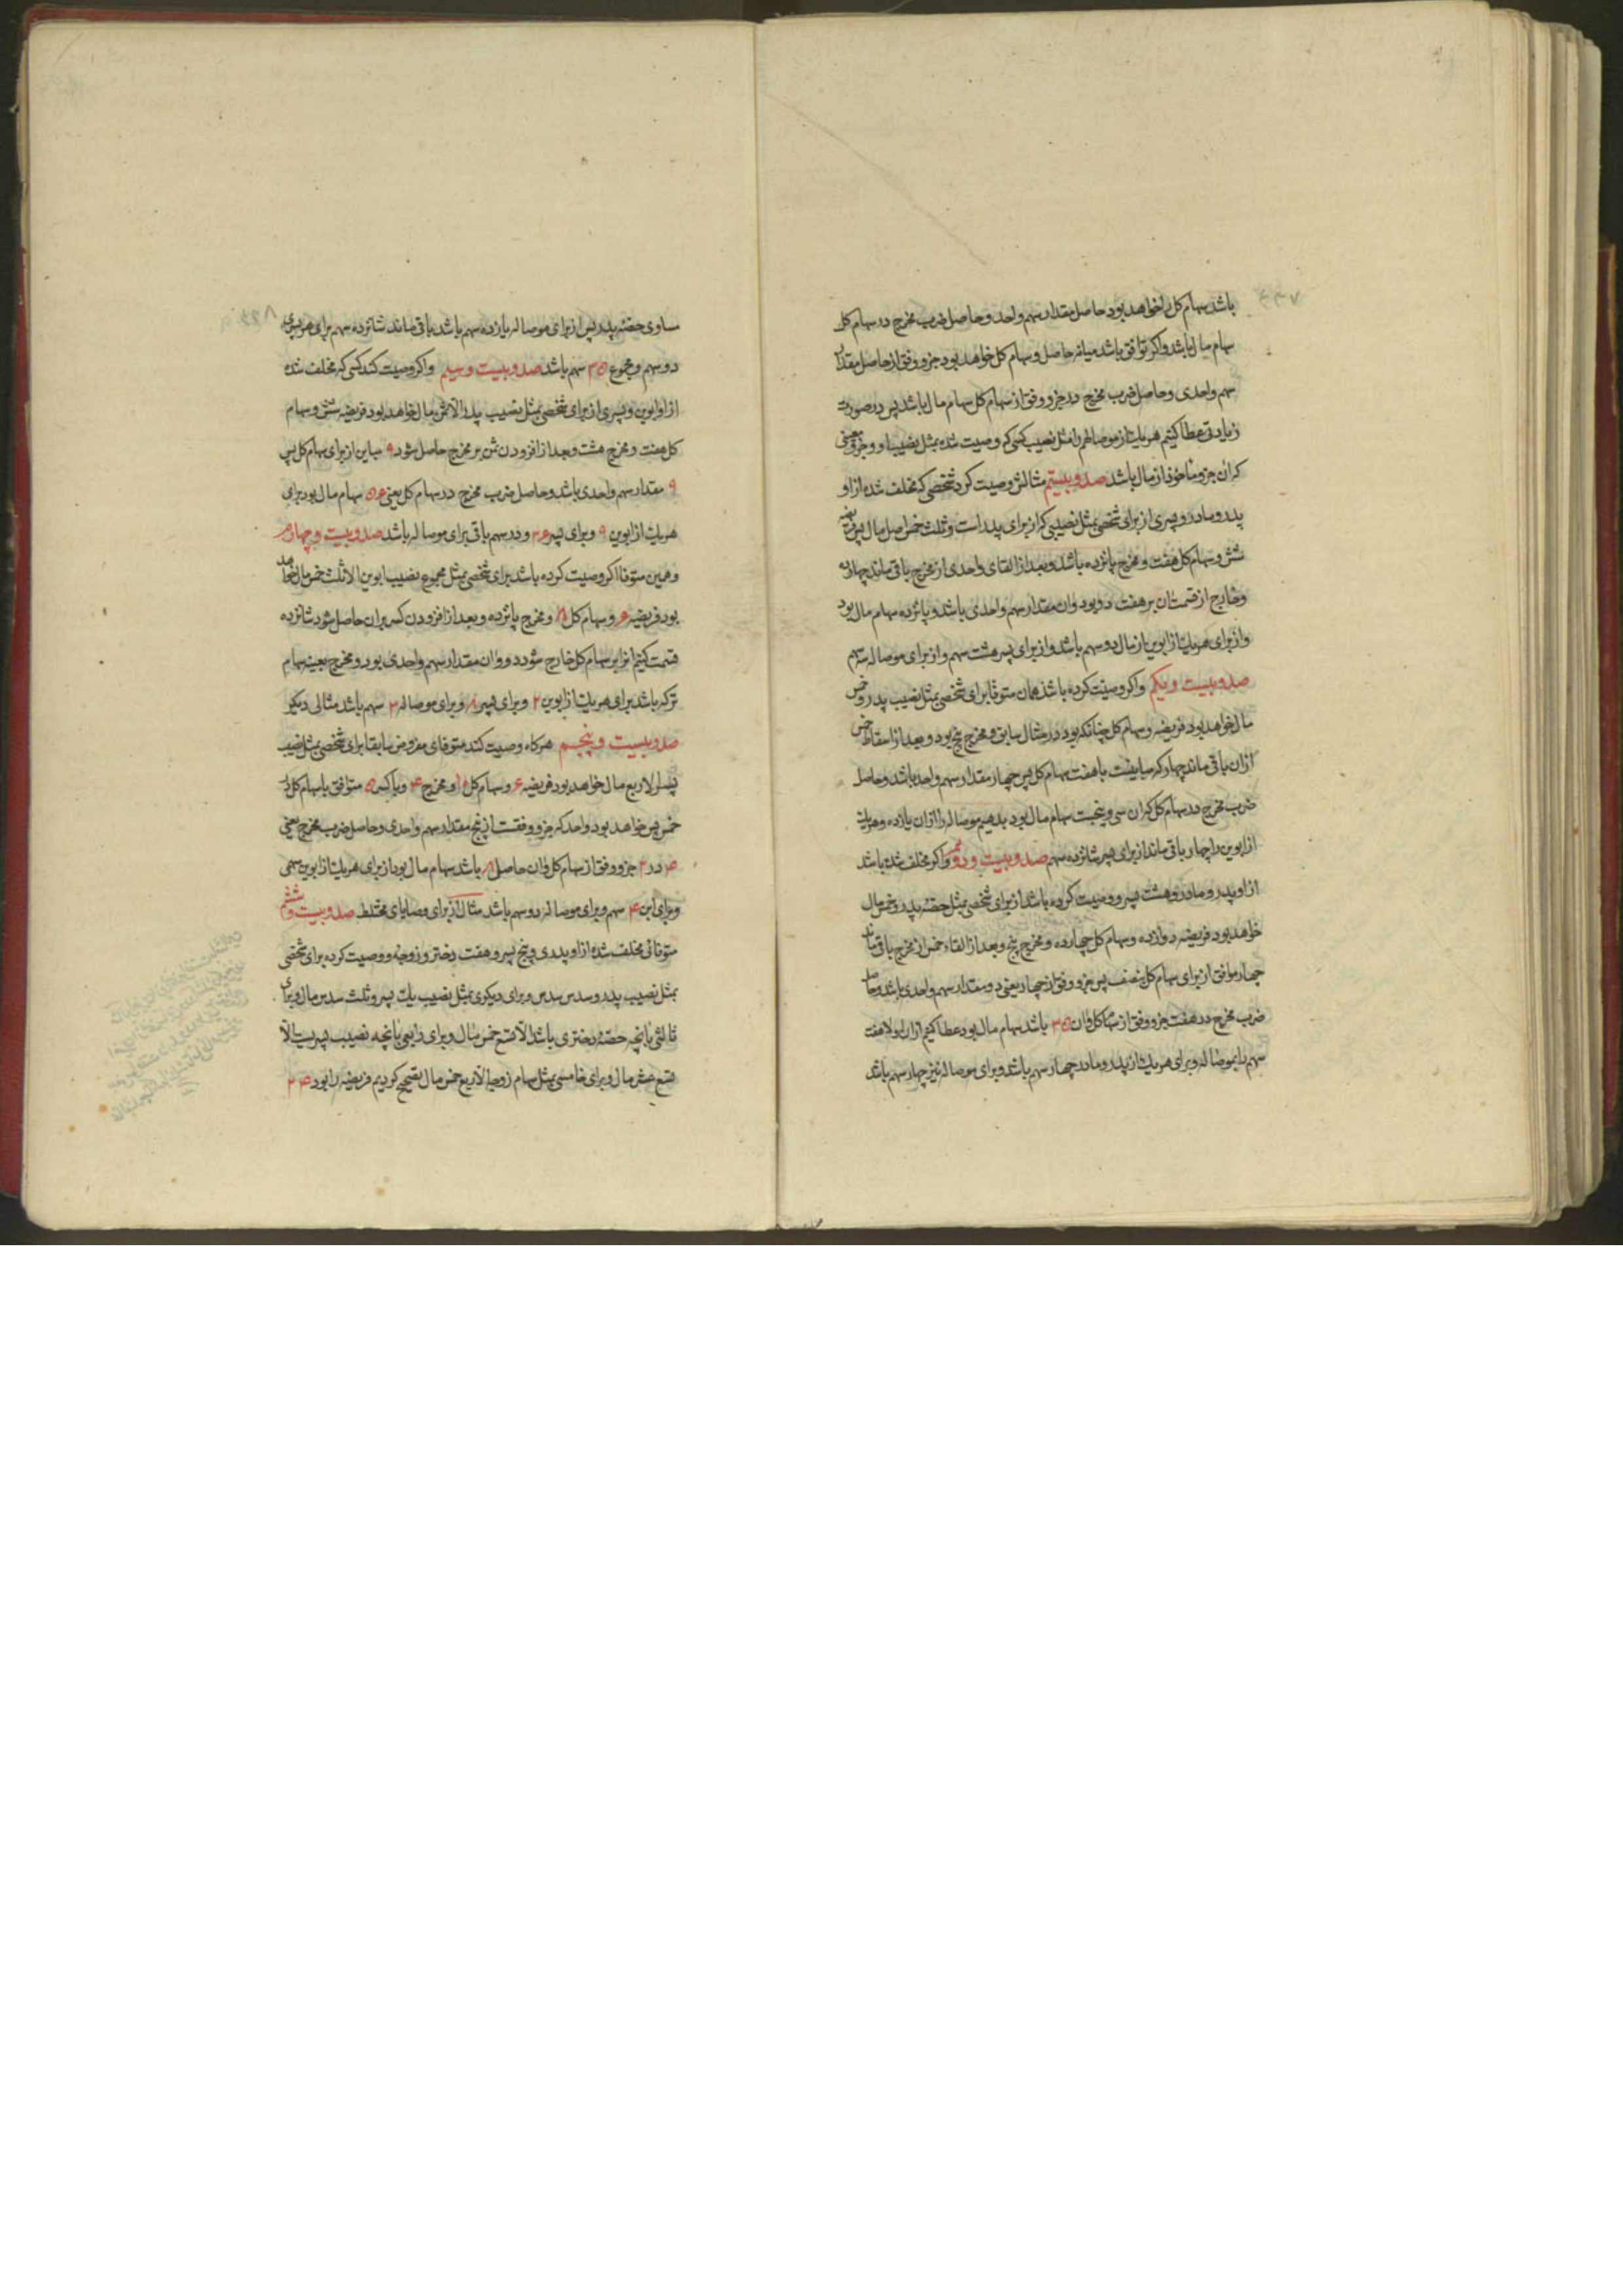 باشد سهام کل را خواهد بود حاصل مقدار سهم واحد و حاصل ضرب مخرج در سهام کل
سهام مال باشد و اکر توافق باشد میانه حاصل و سهام کل خواهد بود جزو وفق از حاصل مقدار
سهم واحدی و حاصل ضرب مخرج در جزو وفق از سهام کل سهام مال باشد پس در صورت
زیادتی عطا کنیم هر یک از موصالهم را مثل نصیب کسی که وصیت شده بمثل نصیب او و جزو معینی
که ان جزو ماخوذ از مال باشد صد و بیستم مثالش وصیت کرد شخصی که مخلف شده از او
پدر و مادر و پسری از برای شخصی بمثل نصیبی که از برای پدر است و ثلث خمس اصل مال پس فریضه
شش و سهام کل هفت و مخرج پانزده باشد و بعد از القای واحدی از مخرج باقی ماند چهارده
و خارج از قسمت ان بر هفت دو بود و ان مقدار سهم واحدی باشد و پانزده سهام مال بود
و از برای هر یک از ابوین از مال دو سهم باشد و از برای پسر هشت سهم و از برای موصا له سه سهم
صد و بیست و یکم و اکر وصیت کرده باشد همان متوفا برای شخصی بمثل نصیب پدر و خمس
مال خواهد بود فریضه و سهام کل چنانکه بود در مثال سابق و مخرج پنج بود و بعد از اسقاط خمس
از ان باقی ماند چهار که مباینست با هفت سهام کل پس چهار مقدار سهم واحد باشد و حاصل
ضرب مخرج در سهام کل که ان سی و پنجست سهام مال بود بدهیم موصا له را از ان یازده و هر یک
از ابوین را چهار باقی ماند از برای پسر شانزده سهم صد و بیست و دوم و اکر مخلف شده باشد
از او پدر و مادر و هشت پسر و وصیت کرده باشد از برای شخصی بمثل حصه پدر و خمس مال
خواهد بود فریضه دوازده و سهام کل چهارده و مخرج پنج و بعد از القاء خمس از مخرج باقی ماند
چهار موافق از برای سهام کل بنصف پس جزو وفق از چهار یعنی دو مقدار سهم واحدی باشد و حاصل
ضرب مخرج در هفت جزو وفق از سهام کل و ان ۳۵ باشد سهام مال بود عطا کنیم از ان اولا هفت
سهم بایموصا له و برای هر یک از پدر و مادر چهار سهم باشد و برای موصا له نیز چهار سهم باشد
مساوی حصه پدر پس از برای موصا له یازده سهم باشد باقی ماند شانزده سهم برای هر پسری
دو سهم و مجموع ۳۵ سهم باشد صد و بیست و سیم و اکر وصیت کند کسی که مخلف شده
از او ابوین و پسری از برای شخصی بمثل نصیب پدر الا ثمن مال خواهد بود فریضه شش و سهام
کل هفت و مخرج هشت و بعد از افزودن ثمن بر مخرج حاصل شود ۹ مباین از برای سهام کل پس
۹ مقدار سهم واحدی باشد و حاصل ضرب مخرج در سهام کل یعنی ۵۶ سهام مال بود برای
هر یک از ابوین ۹ و برای پسر ۳۶ و دو سهم باقی برای موصا له باشد صد و بیست و چهارم
و همین متوفا اکر وصیت کرده باشد برای شخصی بمثل مجموع نصیب ابوین الا ثلث خمس مال خواهد
بود فریضه ۶ و سهام کل ۸ و مخرج پانزده و بعد از افزودن کسر بران حاصل شود شانزده
قسمت کنیم انرا بر سهام کل خارج شود دو و ان مقدار سهم واحدی بود و مخرج بعینه سهام
ترکه باشد برای هر یک از ابوین ۲ و برای پسر ۸ و برای موصا له ۳ سهم باشد مثالی دیکر
صد و بیست و پنجم هرکاه وصیت کند متوفای مفروض سابقا برای شخصی بمثل نصیب
پسر الا ربع مال خواهد بود فریضه ۶ و سهام کل ۱۰ و مخرج ۴ و با کسر ۵ متوافق با سهام کل در
خمس پس خواهد بود واحد که جزو وفقست از پنج مقدار سهم واحدی و حاصل ضرب مخرج یعنی
۴ در ۲ جزو وفق از سهام کل و ان حاصل ۸ باشد سهام مال بود از برای هر یک از ابوین سهمی
و برای ابن ۴ سهم و برای موصا له دو سهم باشد مثال از برای وصایای مختلط صد و بیست و ششم
متوفائی مخلف شده از او پدری و پنج پسر و هفت دختر و زوجه و وصیت کرده برای شخصی
بمثل نصیب پدر و سدس سدس و برای دیکری بمثل نصیب یک پسر و ثلث سدس مال و برای
ثالثی بانچه حصهٔ دختری باشد الا تسع خمس مال و برای رابعی بانچه نصیب پسریست الا
تسع عشر مال و برای خامسی بمثل سهام زوجه الا ربع خمس مال تصحیح کردیم فریضه را بود ۲۴